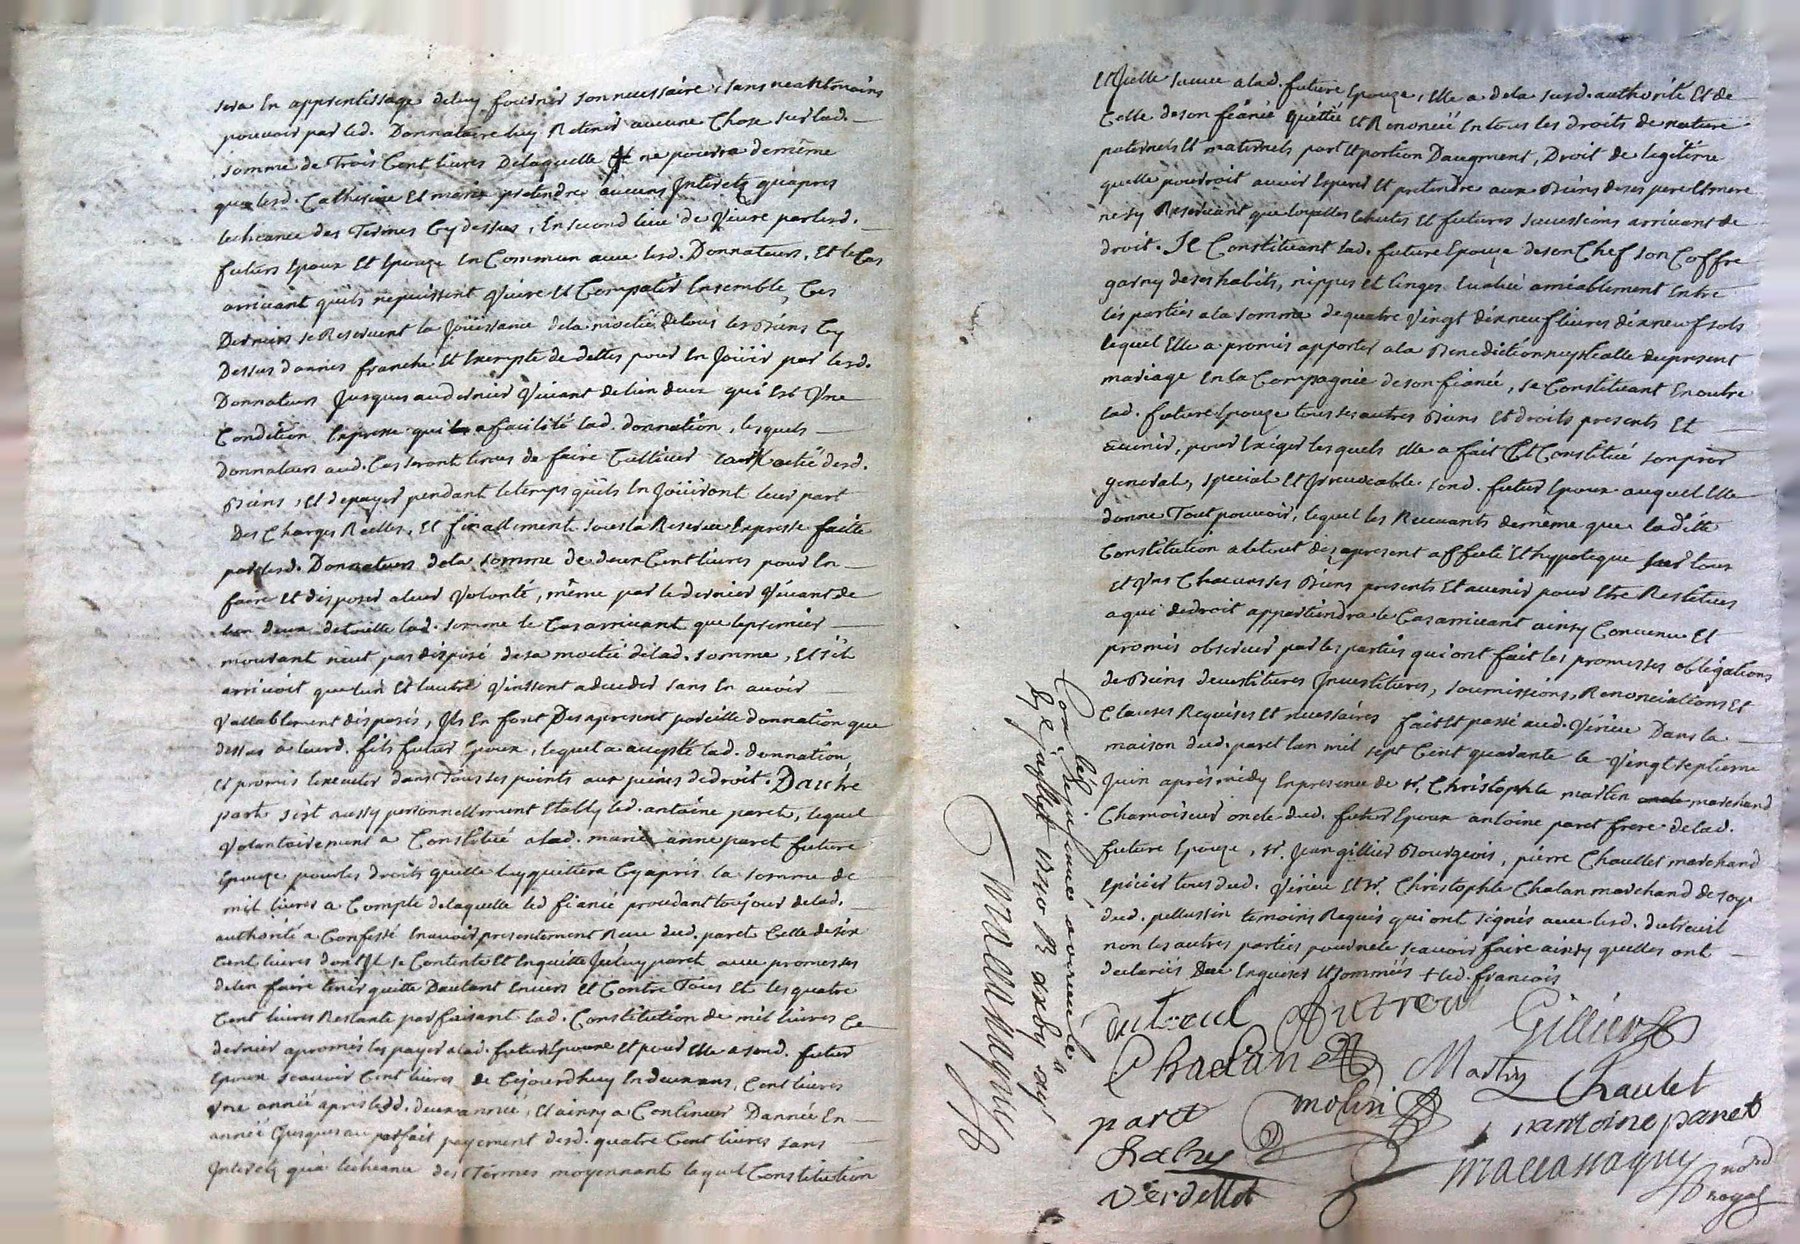 sera en apprentissage deluy fournir son necessaire, sans neantmoins
pouvoir par led. Donnataire luy Retenir aucune Chose sur lad.
somme de Trois Cent livres Delaquelle ne pourra demême
que lesd. Catherine Et marie pretendre aucuns Interets qu'apres
lecheance des Termes Cy dessus, En second lieu de Vivre par lesd.
futurs Epoux Et Epouze En Commun avec lesd. Donnateurs, Et le Cas
arrivant quils nepuissent Vivre Et Compatir Ensemble, Ces
Derniers se Reservent la Joüissance dela moitié detous les Biens Cy
Dessus donnés franche Et Exempte de dettes pour En Joüir par lesd.
Donnateurs Jusques audernier Vivant delun deux qui Est Une
Condition Expresse qui a facilité lad. donnation, lesquels
Donnateurs aud. Cas seront tenus de faire Cultiver moitié desd.
Biens, Et depayer pendant letemps quils En Joüiront leur part
Des Charges Réelles, Et finallement sous la Reserve Expresse faitte
par lesd. Donnateurs dela somme de deux Cent livres pour En
faire Et disposer aleur Volonté, même par le dernier Vivant de
deux detoutte lad. somme le Cas arrivant que lepremier
mourant neut pas disposé desa moitié delad. somme, Et s'il
arrivoit quelun Et lautre Vinssent adeceder sans En avoir
Vallablement disposés, Ils En font Des apresent pareille donnation que
dessus a leurd. fils futur Epoux, lequel a accepté lad. donnation
Et promis Lexecuter dans Tous ses points aux peines dedroit. Dautre
part s'est aussy personnellement Etably led. antoine paret, lequel
Volontairement a Constitué alad. marie anne paret future
Epouze pour les droits quelle luy quittera Cy apres la somme de
mil livres a Compte delaquelle led fiancé procedant toujour delad.
authorité a Confessé Enavoir presentement Receu dud. paret Celle de six
Cent livres dont Il se Contente Et Enquitte led. paret avec promesses
delen faire tenir quitte Dautant Envers Et Contre Tous Et les quatre
Cent livres Restante parfaisant lad. Constitution de mil livres Ce
dernier a promis les payer alad. future Epouze Et pour Elle asond. futur
Epoux scavoir Cent livres de Cejourdhuy En deux ans, Cent livres
Une année apres lesd. deux année, Et ainsy a Continuer Dannée En
année Jusques au parfait payement desd. quatre Cent livres sans
Interets qu'a lecheance des Termes moyennants lequel Constitution
alad. future Epouze, Elle a dela susd. authorité Et de
Celle deson fiancé quitté Et Renoncé En tous les droits de nature
paternels Et maternels part Et portion Daugment, Droit de legitime
quelle pourroit avoir Esperer Et pretendre aux Biens deses pere Et mere
nesy Reservant que loyalles Echutes Et futures successions arrivant de
droit. Se Constituant lad. future Epouze deson Chef son Coffre
garny deses habits, nippes Et linges Evalué amiablement Entre
les parties ala somme dequatre Vingt dix neuf livres dix neuf sols
lequel Elle a promis apporter ala Benediction nuptialle dupresent
mariage En la Compagnie deson fiancé, se Constituant Enoutre
lad. future Epouze tous ses autres Biens Et droits presents Et
avenir, pour Exiger lesquels Elle a fait Et Constitué son prcr
general, special Et Irrevocable sond. futur Epoux auquel Elle
donne Tout pouvoir, lequel les Recevants demême que ladite
Constitution a letout des apresent affecté Et hypoteque sur tous
Et Uns Chacuns ses Biens presents Et avenir pour Etre Restitués
a qui dedroit appartiendra le Cas arrivant ainsy Convenu Et
promis observer par les parties qui ont fait les promesses obligations
de Biens devestitures Investitures, soumissions, Renonciations Et
Clauses Requises Et necessaires fait Et passé aud. Virieu Dans la
maison dud. paret lan mil sept Cent quarante le Vingt septieme
Juin apres midy En presence de sr. Christophle martin marchand
Chamoiseur oncle dud. futur Epoux antoine paret frere delad.
future Epouze, sr. Jean gillier Bourgeois, pierre Chaullet marchand
Epicier tous dud. Virieu Et sr. Christophle Chalan marchand de soye
dud. pellussin temoins Requis qui ont signés avec lesd. dutreuil
non les autres parties pour ne le scavoir faire ainsy quelles ont
declarés Deu Enquises Et sommés + led. francois
dutreul Dutreul Gillier
Chalan Martin Chaulet
paret molin antoine paret
Verdellet not
royal